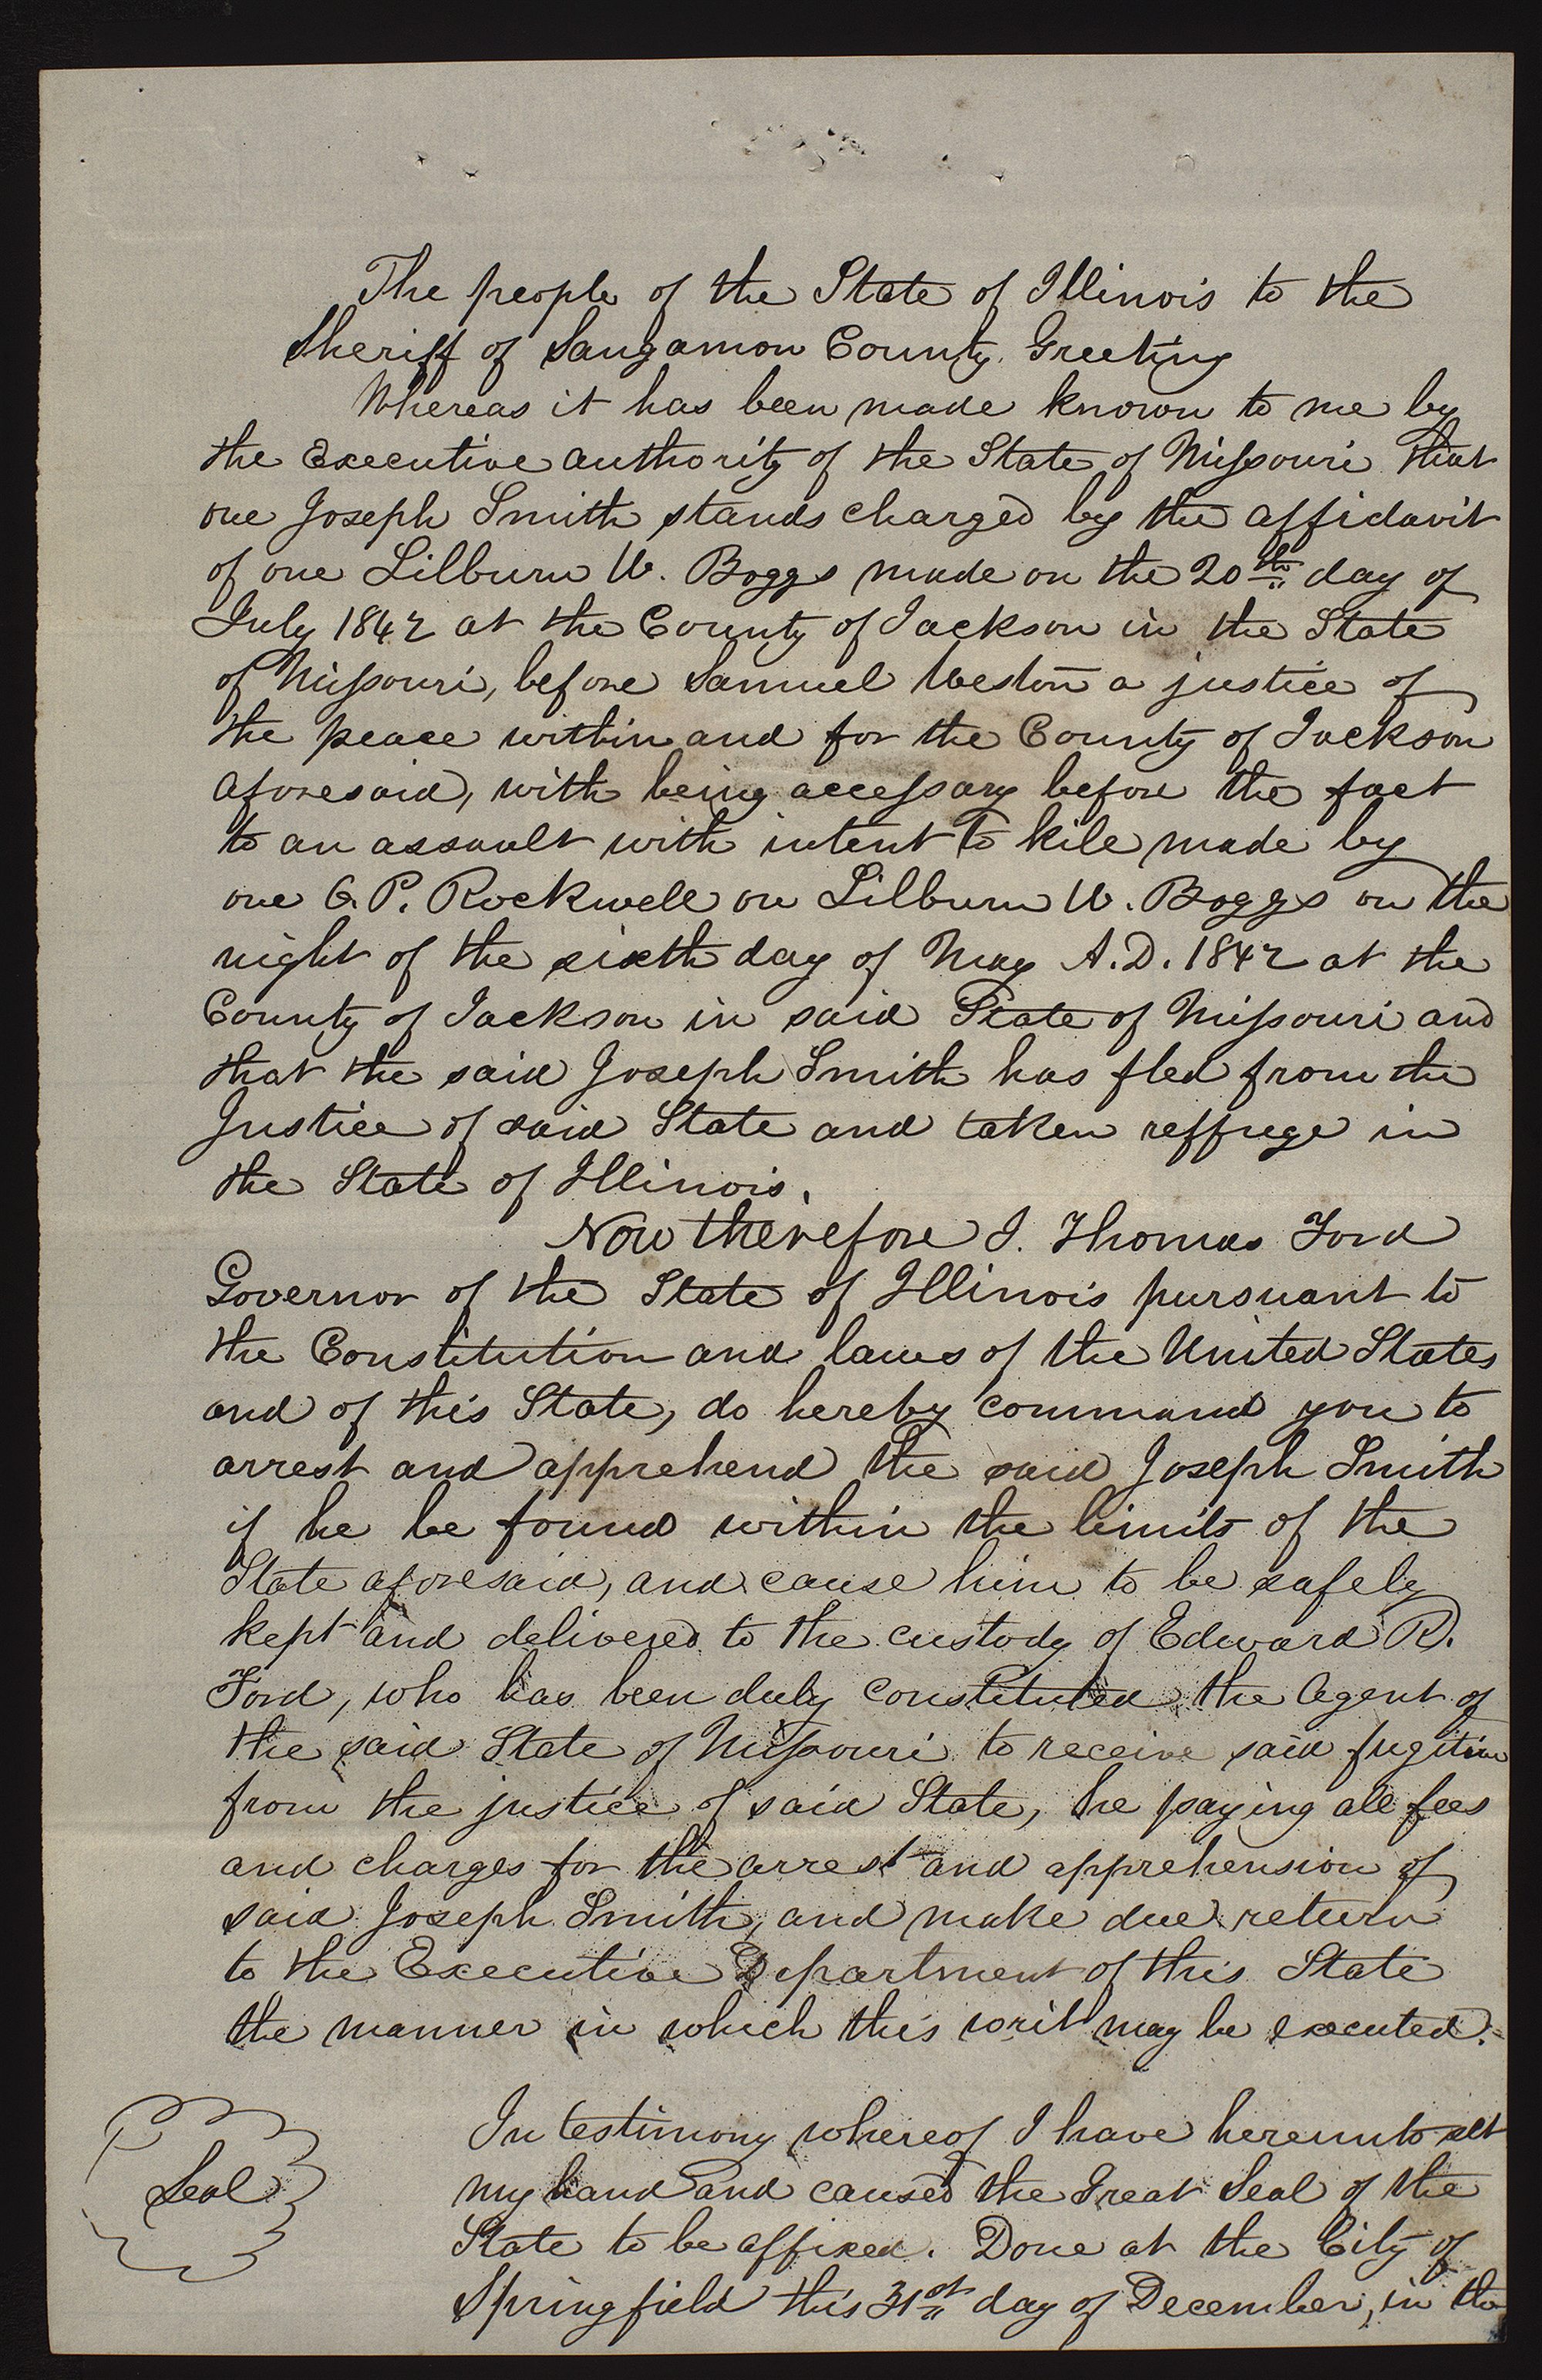 The people of the State of Illinois to the
Sheriff of Sangamon County. Greeting
Whereas it has been made known to me by
the Executive authority of the State of Missouri that
one Joseph Smith stands charged by the affidavit
of one Lilburn W. Boggs made on the 20th day of
July 1842 at the County of Jackson in the State
of Missouri, before Samuel Weston a justice of
the peace within and for the County of Jackson
aforesaid, with being accessary before the fact
to an assault with intent to kill made by
one O. P. Rockwell on Lilburn W. Boggs on the
night of the sixth day of May A.D. 1842 at the
County of Jackson in said State of Missouri and
that the said Joseph Smith has fled from the
Justice of said State and taken reffuge in
the State of Illinois.
Now therefore I. Thomas Ford
Governor of the State of Illinois pursuant to
the Constitution and laws of the United States
and of this State, do hereby command you to
arrest and apprehend the said Joseph Smith
if he be found within the limits of the
State aforesaid, and cause him to be safely
kept and delivered to the custody of Edward R.
Ford, who has been duly constituted the Agent of
the said State of Missouri to receive said fugitive
from the justice of said State, he paying all fees
and charges for the arrest and apprehension of
said Joseph Smith, and make due return
to the Executive Department of this State
the manner in which this writ may be executed.
In testimony whereof I have hereunto set
my hand and caused the Great Seal of the
Seal
State to be affixed. Done at the City of
Springfield this 31st day of December, in the